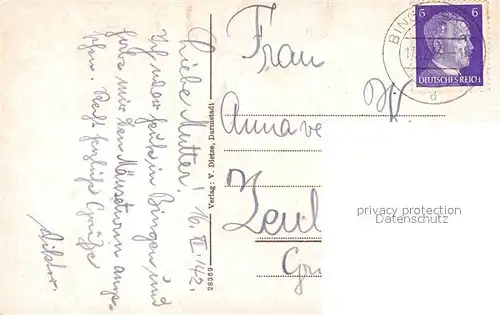 Liebe Mutter! 16. II. 42.
Ich war heute in Bingen und
habe mir den Mäuseturm ange-
sehen. Recht herzliche Grüße
Viktor.
Verlag: V. Dietze, Darmstadt
28369
Frau
Anna
BING
d
6 6
DEUTSCHES REICH
privacy protection
Datenschutz